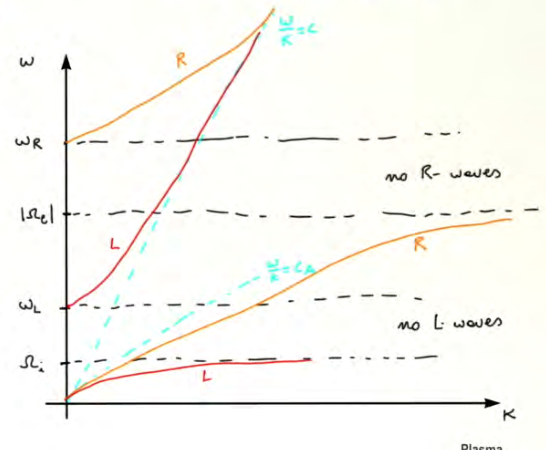 ω/k = c
R
ω
ω_R
no R- waves
|Ω_e|
L
R
ω/k = c_A
ω_L
no L- waves
Ω_i
L
K
Plasma